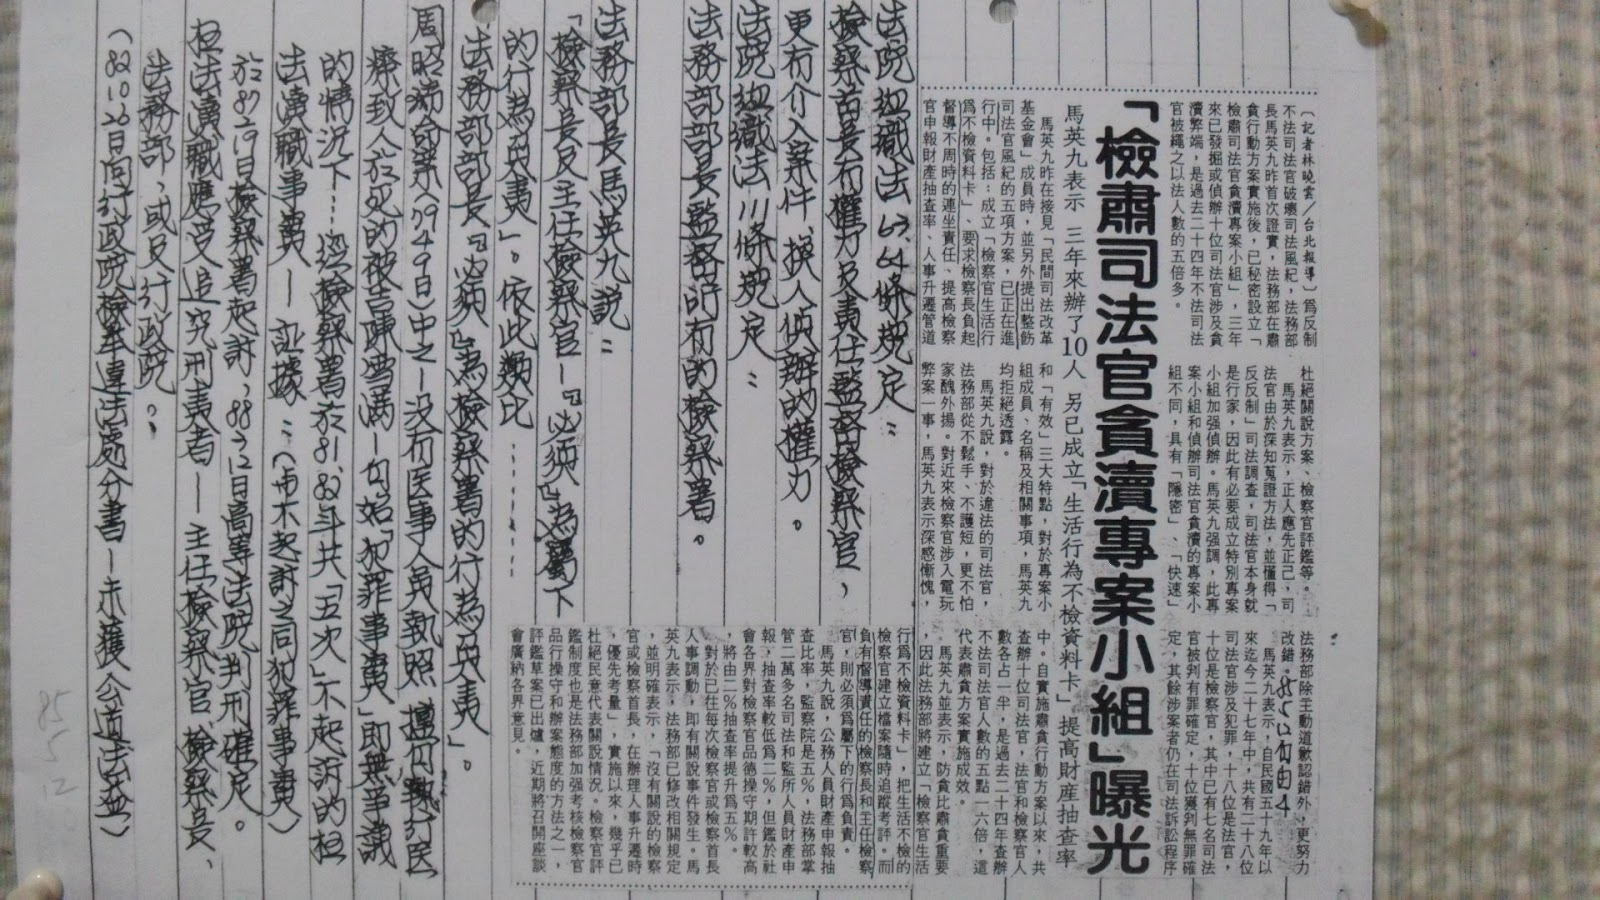 「檢肅司法官貪瀆專案小組」曝光
馬英九表示 三年來辦了10人 另已成立「生活行為不檢資料卡」提高財產抽查率
〔記者林曉雲/台北報導〕為反制
不法司法官破壞司法風紀,法務部
長馬英九昨首次證實,法務部在肅
貪行動方案實施後,已秘密設立「
檢肅司法官貪瀆專案小組」,三年
來已發掘或偵辦十位司法官涉及貪
瀆弊端,是過去二十四年不法司法
官被繩之以法人數的五倍多。
馬英九昨在接見「民間司法改革
基金會」成員時,並另外提出整飭
司法官風紀的五項方案,已正在進
行中。包括:成立「檢察官生活行
為不檢資料卡」、要求檢察長負起
督導不周時的連坐責任、提高檢察
官申報財產抽查率、人事升遷管道
杜絕關說方案、檢察官評鑑等。
馬英九表示,正人應先正己,司
法官由於深知蒐證方法,並懂得「
反反制」司法調查,司法官本身就
是行家,因此有必要成立特別專案
小組加強偵辦。馬英九強調,此專
案小組和偵辦司法官貪瀆的專案小
組不同,具有「隱密」、「快速」
和「有效」三大特點,對於專案小
組成員、名稱及相關事項,馬英九
均拒絕透露。
馬英九說,對於違法的司法官,
法務部從不鬆手、不護短,更不怕
家醜外揚。對近來檢察官涉入電玩
弊案一事,馬英九表示深感慚愧,
法務部除主動道歉認錯外,更努力
改錯。
馬英九表示,自民國五十九年以
來迄今二十七年中,共有二十八位
司法官涉及犯罪,十八位是法官,
十位是檢察官,其中已有七名司法
官被判有罪確定,十位獲判無罪確
定,其餘涉案者仍在司法訴訟程序
中。自實施肅貪行動方案以來,共
查辦十位司法官,法官和檢察官人
數各占一半,是過去二十四年查辦
不法司法官人數的五點一六倍,這
代表肅貪方案實施成效。
馬英九並表示,防貪比肅貪重要
,因此法務部將建立「檢察官生活
行為不檢資料卡」,把生活不檢的
檢察官建立檔案隨時追蹤考評。而
負有督導責任的檢察長和主任檢察
官,則必須為屬下的行為負責。
馬英九說,公務人員財產申報抽
查比率,監察院是五%,法務部掌
管二萬多名司法和監所人員財產申
報,抽查率較低為二%,但鑑於社
會各界對檢察官品德操守期許較高
,將由二%抽查率提升為五%。
對於已往每次檢察官或檢察首長
人事調動,即有關說事件發生。馬
英九表示,法務部已修改相關規定
,並明確表示,「沒有關說的檢察
官或檢察首長,在辦理人事升遷時
,優先考量」,實施以來,幾乎已
杜絕民意代表關說情況。檢察官評
鑑制度也是法務部加強考核檢察官
品行操守和辦案態度的方法之一,
評鑑草案已出爐,近期將召開座談
會廣納各界意見。
法院組織法63.64條規定:
檢察首長有權力及責任監督檢察官,
更有介入案件、換人偵辦的權力。
法院組織法111條規定:
法務部部長監督所有的檢察署。
法務部長馬英九說:
「檢察長及主任檢察官—『必須』為屬下
的行為負責」。依此類比………
「法務部部長『必須』為檢察署的行為負責」。
周昭綿命案(79 4 9日)中之—沒有医事人員執照、擅行執行医
療致人於死的被告陳雪滿—自始「犯罪事實」即無爭議
的情況下……迳檢察署於81.82年共「五次」不起訴的枉
法瀆職事實—証據:(与不起訴之同犯罪事實)
於87 2 9日檢察署起訴,88 3 12日高等法院判刑確定。
枉法瀆職應受追究刑責者—主任檢察官、檢察長、
法務部,或及行政院。
(82 10 26日向行政院檢舉違法處分書—未獲公道法益)
85 5 12